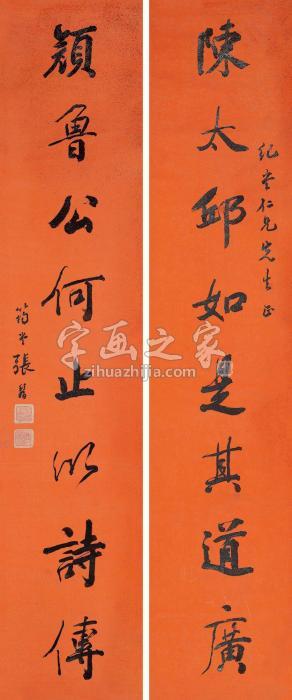 陳太邱如是其道廣
紀堂仁兄先生正
顏魯公何止以詩傳
張
字画之家
zihuazhijia.com